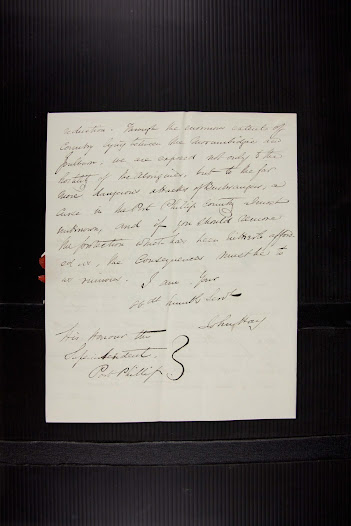 reduction. Through the enormous extent of
Country lying between the Murrumbidgee and
Goulburn, we are exposed not only to the
hostility of the Aborigines, but to the far
more dangerous attacks of Bushrangers, a
class in the Port Phillip Country almost
unknown, and if you should remove
the protection which has been hitherto afford
ed us, the consequences must be to
us ruinous. I am Your
Most humble Servt
John Hay
His Honour the
Superintendent
Port Phillip